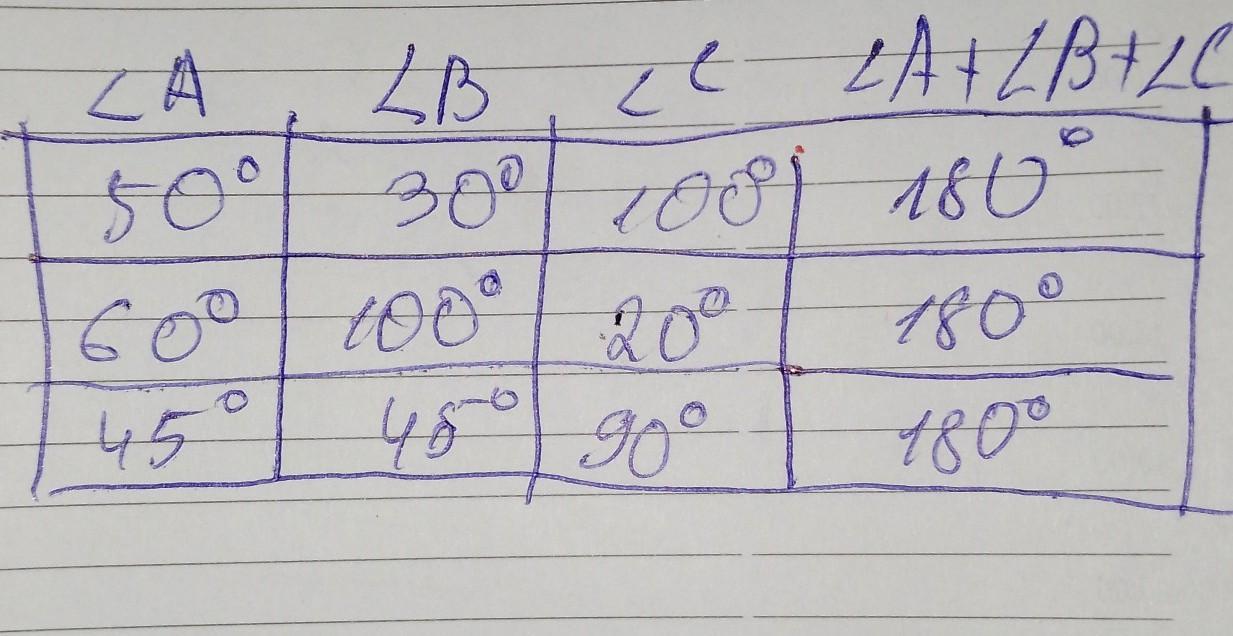 ∠A ∠B ∠C ∠A+∠B+∠C
50° 30° 100° 180°
60° 100° 20° 180°
45° 45° 90° 180°